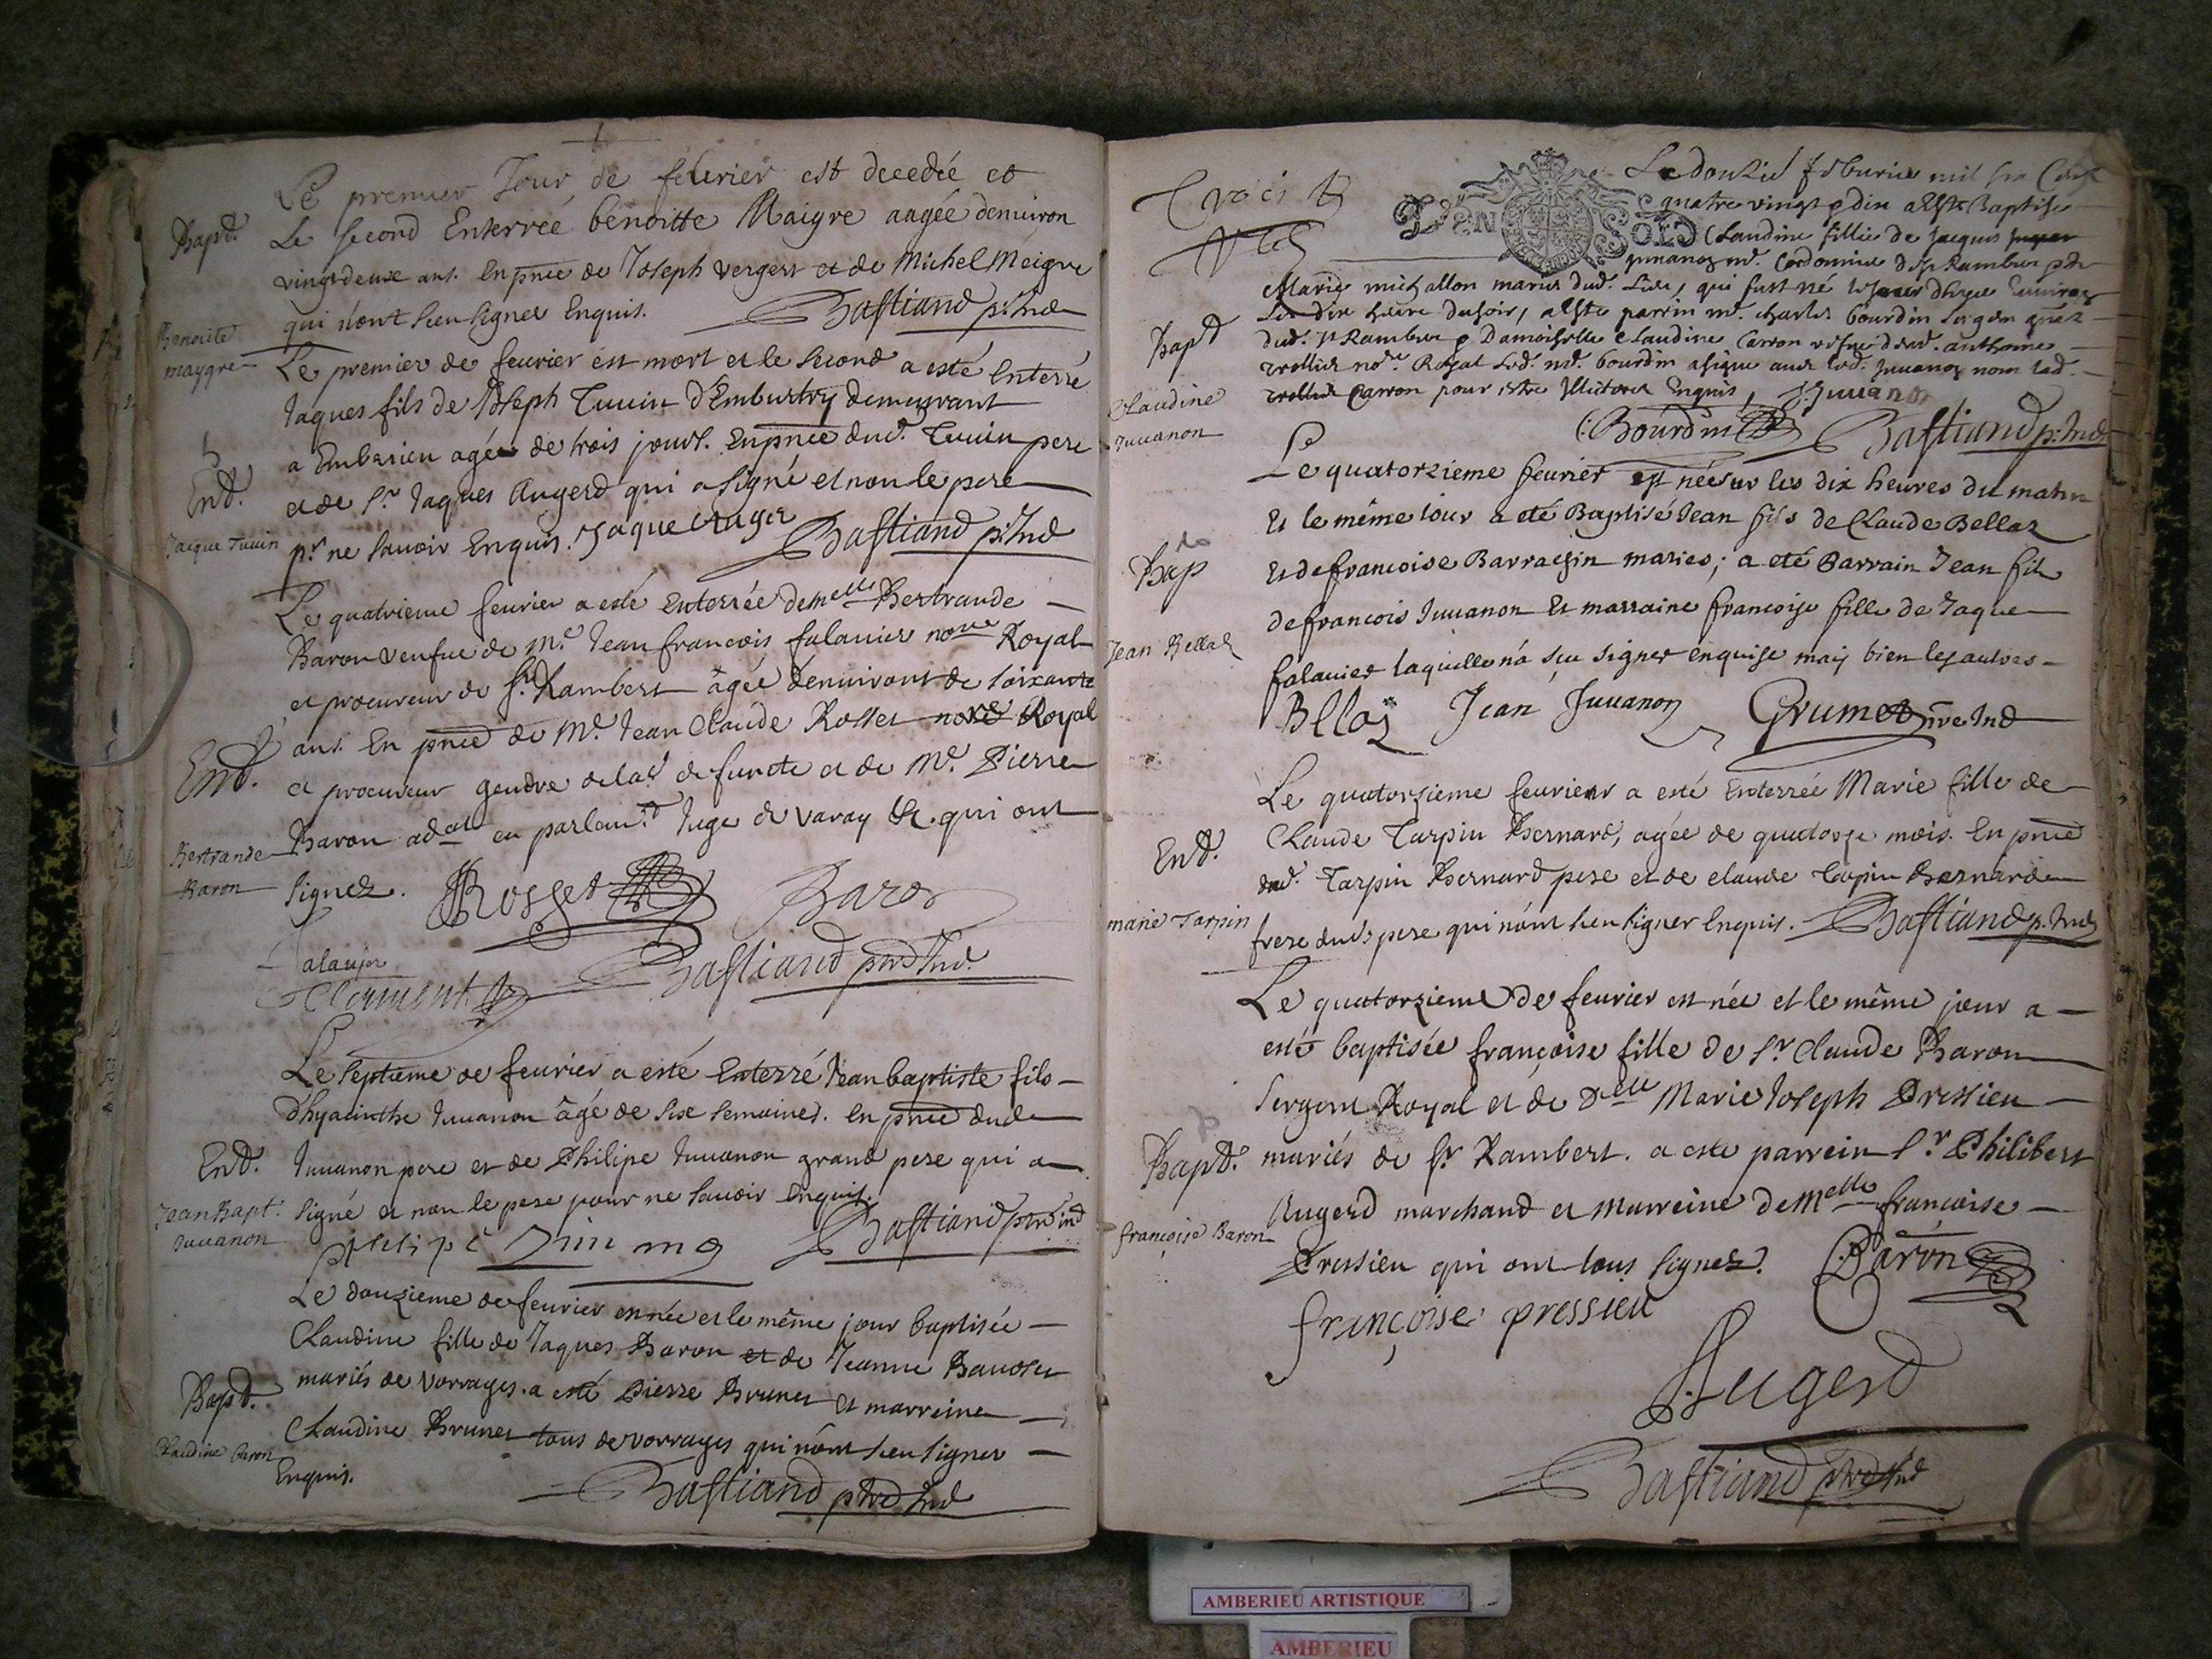 Le premier Jour de feburier est decedée et
Bapt.
Le second Enterrée benoitte Maigre aagée denuiron
vingtdeux ans. En pnce de Joseph vergers et de Michel Meigre
qui n'ont sceu signer Enquis. Bastiand p: Ind
Benoite
maygre
Le premier de feurier est mort et le second a esté Enterré
Jaques fils de Joseph Tuuin d'Embustry demeurant
a Embasieu agée de trois jours. En pnce dud. Tuuin pere
Ent.
et de Sr. Jaques Augerd qui a signé et non le pere
Jacque Tuuin
pr. ne sauoir Enquis. Jaque Auger Bastiand p: Ind
Le quatrieme feurier a esté Enterrée demelle Bertrande
Baron veufue de Me. Jean francois falauier nore Royal
et procureur de St. Rambert âgée denuiront de soixante
ans. En pnce de Me. Jean Claude Rosset nore Royal
Ent.
et procureur gendre de lad defuncte et de Me. Pierre
Baron adat en parlemt. Juge de varay &c. qui ont
Bertrande
Baron
signez. Rosset Baron
falauier
Clermont Bastiand ptre Ind.
Le septieme de feurier a esté Enterré Jean baptiste fils
d'hyacinthe Juuanon âgé de six semaines. En pnce dud
Ent.
Juuanon pere et de Philipe Juuanon grand pere qui a
Jean Bapt.
Juuanon
signé et non le pere pour ne sauoir Enquis.
philipe Bastiand ptre ind
Le douzieme de feurier est née et le même jour baptisée
Claudine fille de Jaques Baron et de Jeanne
Bapt.
mariés de vorrages. a esté Pierre Brunet et marreine
Claudine Brunet tous de vorrages qui n'ont sceu signer
Claudine Baron
Enquis.
Bastiand ptre Ind
DEN SOLS
Le douzie feburier mil six Cens
quatre vingt dix a Esté Baptisee
Claudine fillie de Jacques
Juuanon md. Cordonnier de St Rambert
Marie michallon maries dud. Lieu, qui fust né
Les dix heure du soir, a Esté parrin md. charles bourdin
Bapt
dud. St Rambert Damoiselle Claudine Carron vefue anthoine
Trollier nore. Royal Led. md. bourdin a signe auec led. Juuanon non lad.
Claudine
Juuanon
Trollier Carron pour estre Illitoree Enquis, J Juuanon
Bourdin Bastiand p: Ind
Le quatorzieme feurier est née sur les dix heures du matin
Et le même iour a eté Baptisé Jean fils de Claude Bellaz
Bap
Et de francoise Barrachin maries; a eté Parrain Jean fils
de francois Juuanon Et marraine francoise fille de Jaque
Jean Bellaz
falauier laquelle n'a sçu signer enquise mais bien les autres
Bllaz Jean Juuanon Grumet vre Ind
Le quatorzieme feurier a esté Enterrée Marie fille de
Claude Tarpin Bernard, agée de quatorze mois. En pnce
Ent.
dud. Tarpin Bernard pere et de claude Tarpin Bernard
marie Tarpin
frere dud. pere qui n'ont sceu signer Enquis. Bastiand p. Ind
Le quatorzieme de feurier est née et le même jour a
esté baptisée françoise fille de Sr. Claude Baron
sergent Royal et de Delle Marie Joseph Pressieu
Bapt.
mariés de St. Rambert. a este parrein Sr. Philibert
Augerd marchand et Marreine demelle françoise
françoise Baron
Pressieu qui ont tous signez. Baron
françoise pressieu
Augerd
Bastiand ptre Ind
AMBERIEU ARTISTIQUE
AMBERIEU